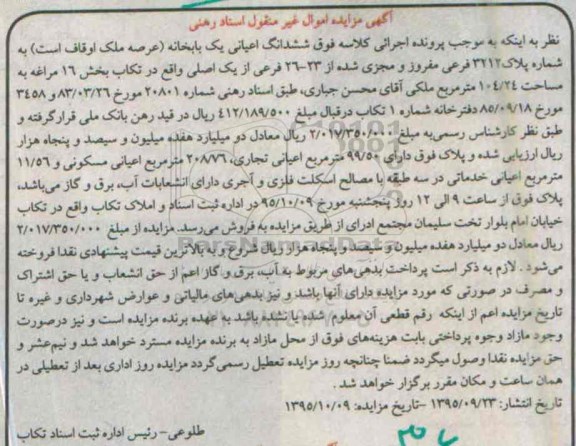 آگهی مزایده اموال غیر منقول اسناد رهنی
نظر به اینکه به موجب پرونده اجرائی کلاسه فوق ششدانگ اعیانی یک بابخانه (عرصه ملک اوقاف است) به
شماره پلاک ۳۲۱۲ فرعی مفروز و مجزی شده از ۲۳-۲۶ فرعی از یک اصلی واقع در تکاب بخش ۱۶ مراغه به
مساحت ۱۰۴/۲۴ مترمربع ملکی آقای محسن جباری، طبق اسناد رهنی شماره ۲۰۸۰۱ مورخ ۸۳/۰۳/۲۶ و ۳۴۵۸
مورخ ۸۵/۰۹/۱۸ دفترخانه شماره ۱ تکاب درقبال مبلغ ۴۱۲/۱۸۹/۵۰۰ ریال در قید رهن بانک ملی قرارگرفته و
طبق نظر کارشناس رسمی به مبلغ ۲/۰۱۷/۳۵۰/۰۰۰ ریال معادل دو میلیارد هفده میلیون و سیصد و پنجاه هزار
ریال ارزیابی شده و پلاک فوق دارای ۹۹/۵۰ مترمربع اعیانی تجاری، ۲۰۸۸۷۶ مترمربع اعیانی مسکونی و ۱۱/۵۶
مترمربع اعیانی خدماتی در سه طبقه با مصالح اسکلت فلزی و آجری دارای انشعابات آب، برق و گاز می‌باشد،
پلاک فوق از ساعت ۹ الی ۱۲ روز پنجشنبه مورخ ۹۵/۱۰/۰۹ در اداره ثبت اسناد و املاک تکاب واقع در تکاب
خیابان امام بلوار تخت سلیمان مجتمع ادارای از طریق مزایده به فروش می‌رسد. مزایده از مبلغ ۲/۰۱۷/۳۵۰/۰۰۰
ریال معادل دو میلیارد هفده میلیون و سیصد و پنجاه هزار ریال شروع و به بالاترین قیمت پیشنهادی نقدا فروخته
می‌شود . لازم به ذکر است پرداخت بدهی‌های مربوط به آب، برق و گاز اعم از حق انشعاب و یا حق اشتراک
و مصرف در صورتی که مورد مزایده دارای آنها باشد و نیز بدهی‌های مالیاتی و عوارض شهرداری و غیره تا
تاریخ مزایده اعم از اینکه رقم قطعی آن معلوم شده یا نشده باشد به عهده برنده مزایده است و نیز درصورت
وجود مازاد وجوه پرداختی بابت هزینه‌های فوق از محل مازاد به برنده مزایده مسترد خواهد شد و نیم‌عشر و
حق مزایده نقدا وصول میگردد ضمنا چنانچه روز مزایده تعطیل رسمی گردد مزایده روز اداری بعد از تعطیلی در
همان ساعت و مکان مقرر برگزار خواهد شد .
تاریخ انتشار: ۱۳۹۵/۰۹/۲۳ -تاریخ مزایده: ۱۳۹۵/۱۰/۰۹
طلوعی- رئیس اداره ثبت اسناد تکاب